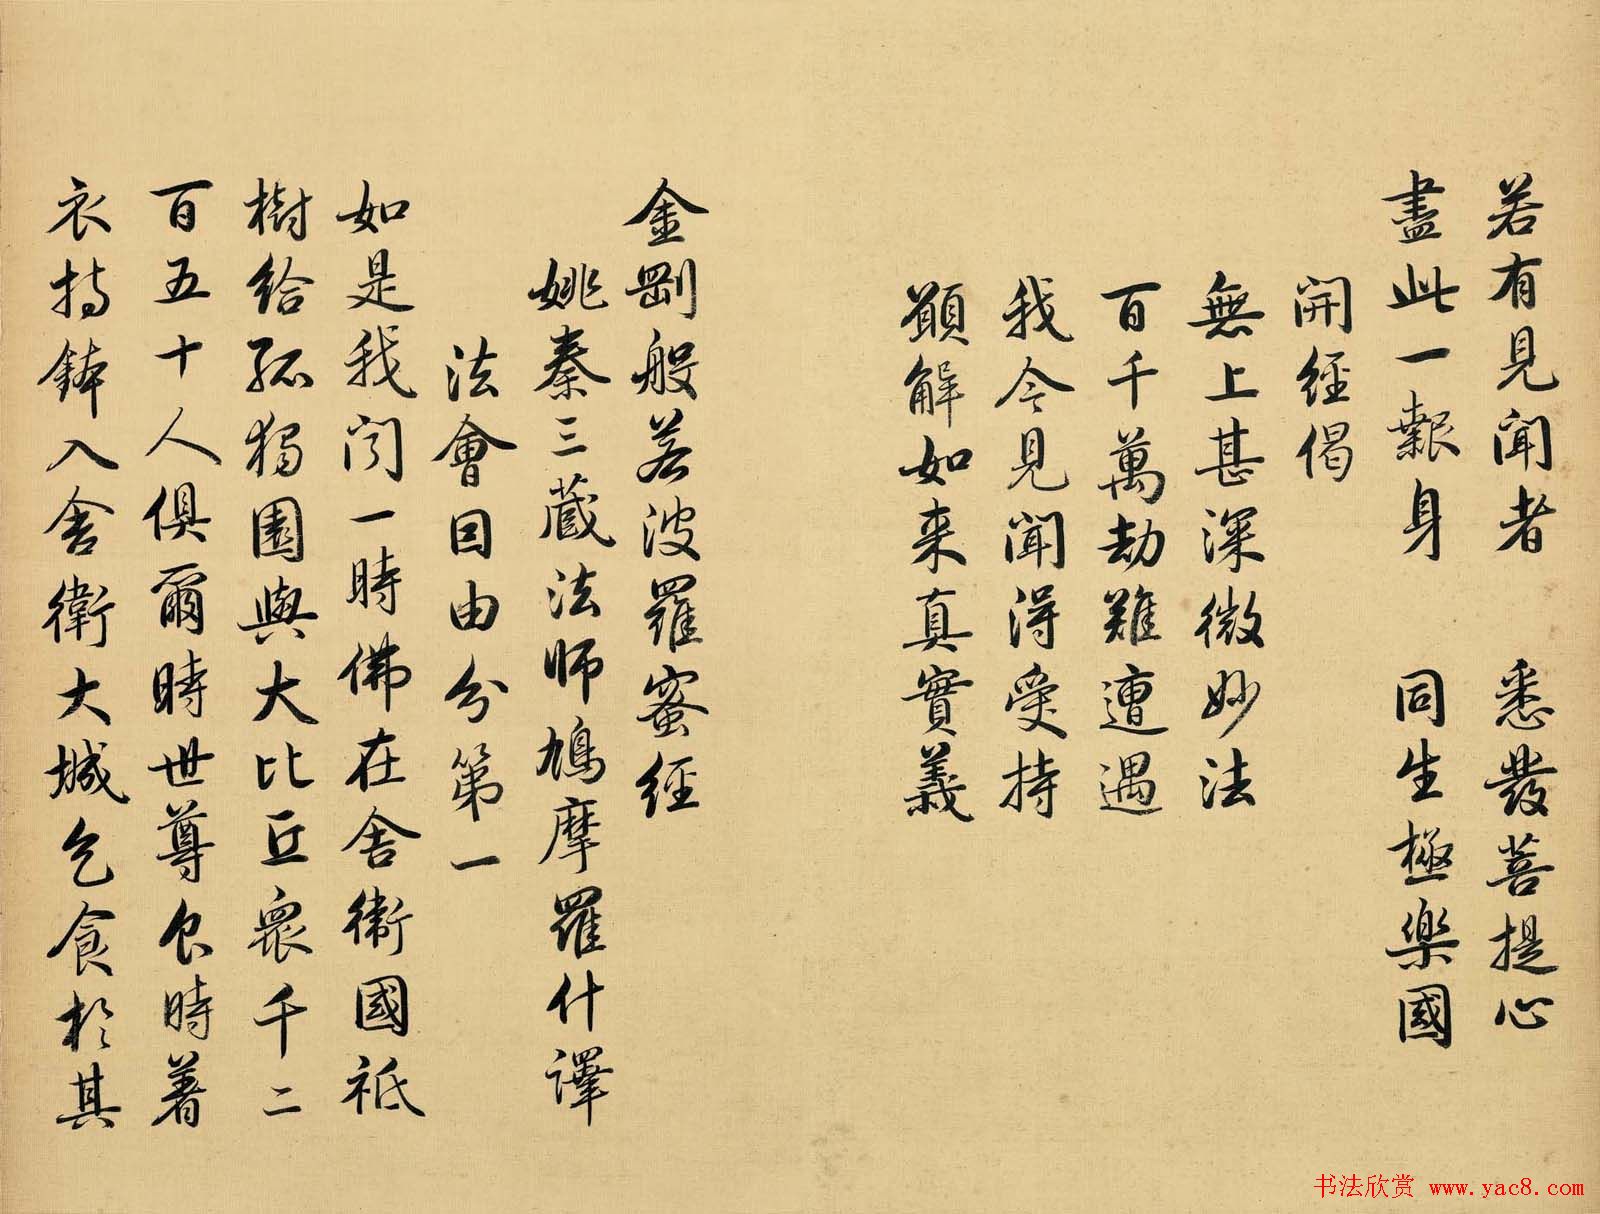 若有見聞者 悉發菩提心
盡此一報身 同生極樂國
開經偈
無上甚深微妙法
百千萬劫難遭遇
我今見聞得受持
願解如来真實義
金剛般若波羅蜜經
姚秦三藏法師鳩摩羅什譯
法會因由分第一
如是我聞一時佛在舍衛國祇
樹給孤獨園與大比丘眾千二
百五十人俱爾時世尊食時著
衣持鉢入舍衛大城乞食於其
书法欣赏 www.yac8.com